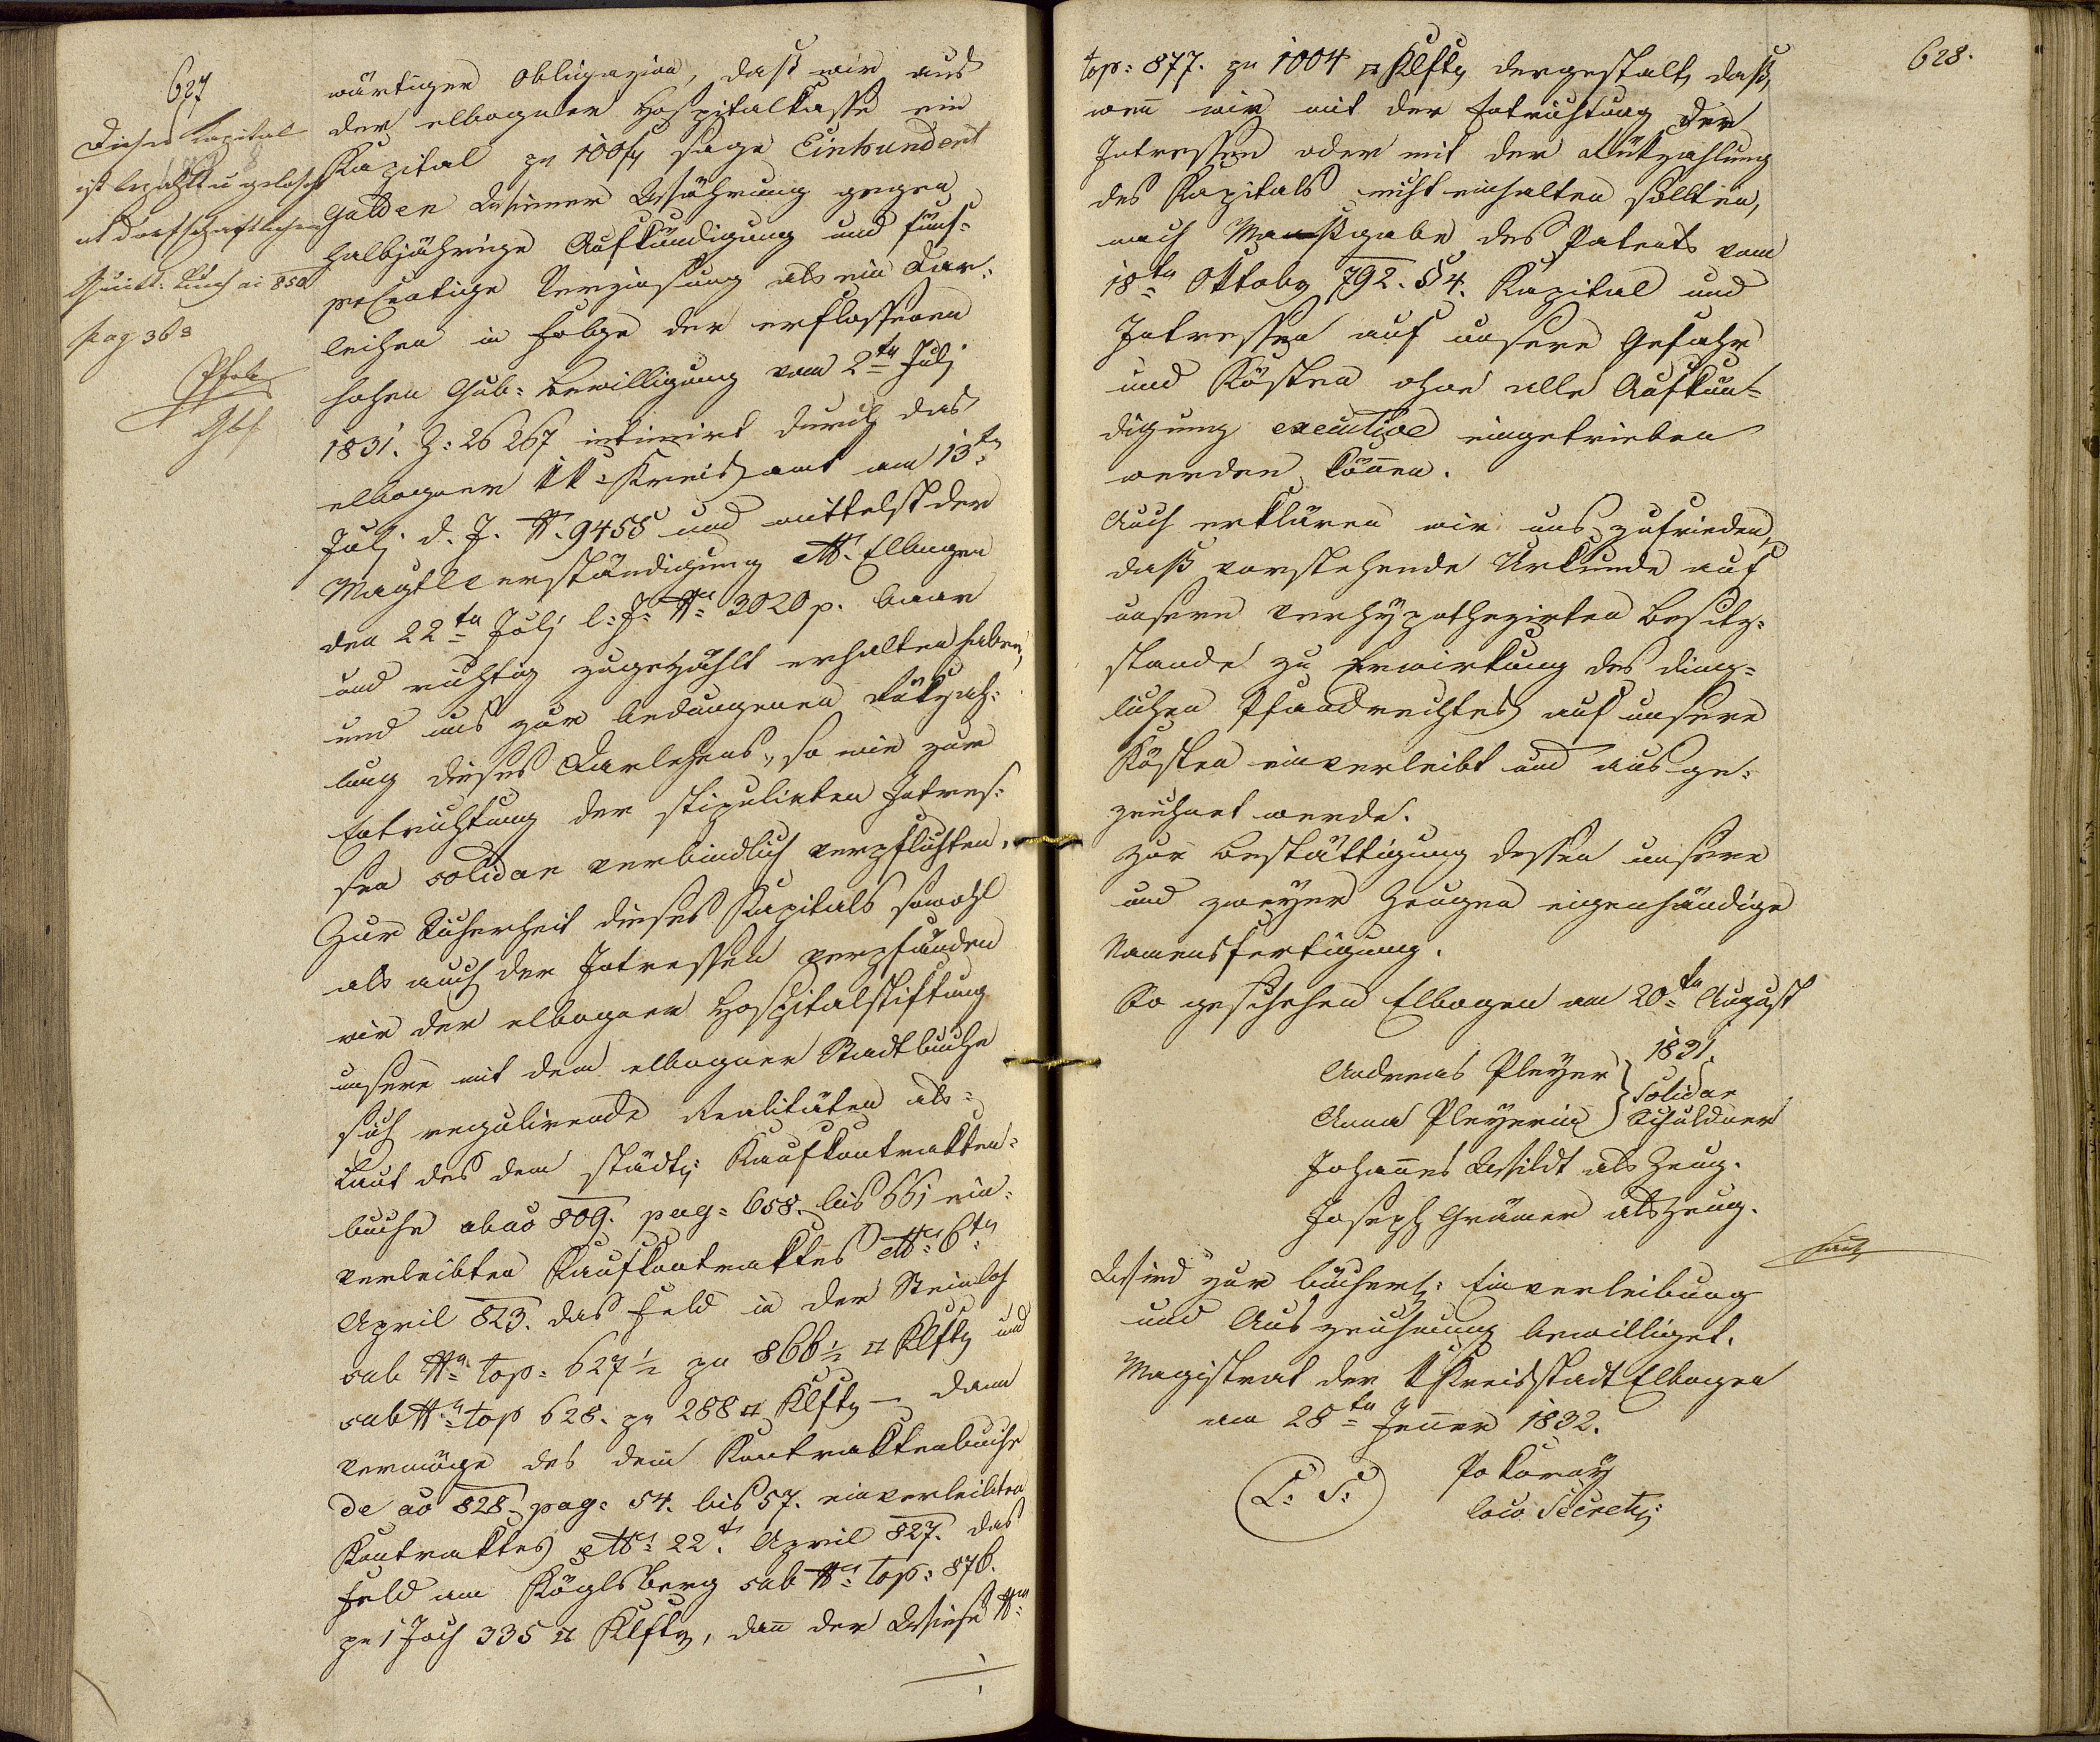 627
Dieses Kapital
ist bezahlt u gelöscht
Quitt: Buch ai 850
pag 363
wärtiger Obligazion, daß wir aus
der elbogner Hospitalkasse ein
Kapital pr 100 f sage Einhundert
Gulden Wiener Währung gegen
halbjährige Aufkündigung und fünf-
percentige Verzinsung als ein Dar-
leihen in Folge der erflossenen
hohen Gub: Bewilligung vom 2ten Julj
1831. Z: 26267 intimirt durch das
elbogner kk Kreisamt am 13t
Julj d. J. N. 9455 und mittelst der
Magtl Verständigung dto. Elbogen
den 22ten Julj l: J: No 3020 p. baar
und richtig zugezählt erhalten haben,
und uns zur bedungenen Rükzah-
lung dieses Darlehens, so wie zur
Entrichtung der stipulirten Intres-
sen solidar verbindlich verpflichten.
Zur Sicherheit dieses Kapitals sowohl
als auch der Intressen verpfänden
wir der elbogner Hospitalstiftung
unsere mit dem elbogner Stadtbuche
sich regulirende Realitäten als:
Laut des dem städt: Kaufkontrakten-
buche ab ao 809. pag: 658. bis 661 ein-
verleibten Kaufkontraktes dto 6tn
April 823. das Feld in der Steinloh
sub No top: 627½ zu 866½ □ Klftr und
sub No top 628. pr 288 □ Klftr – dann
vermöge des dem Kontraktenbuche
de ao 828 pag: 54. bis 57. einverleibten
Kontraktes dto 22t April 827. das
Feld am Köglsberg sub No top: 876.
pr 1 Joch 335 □ Klftr, dañ der Wiese No
628.
top: 877. zu 1004 □ Klftr dergestalt, daß,
wenn wir mit der Entrichtung der
Intressen oder mit der Rükzahlung
des Kapitals nicht einhalten sollten,
nach Maaßgabe des Patents vom
18tn Oktober 792. § 4. Kapital und
Intressen auf unsere Gefahr
und Kösten ohne alle Aufkün-
digung executive eingetrieben
werden köñen.
Auch erklären wir uns zufrieden,
daß vorstehende Urkunde auf
unsere verhypothezirten Besitz-
stande zu Erwirkung des ding-
lichen Pfandrechtes auf unsere
Kösten einverleibt und ausge-
zeichnet werde.
Zur Bestättigung dessen unsere
und zweyer Zeugen eigenhändige
Namensfertigung.
So geschehen Elbogen am 20tn August
1831.
Andreas Pleyer } Solidar
Anna Pleyerin } Schuldner
Johannes Wildt als Zeug.
Joseph Grämer als Zeug.
Wird zur bücherl: Einverleibung
und Auszeichnung bewilliget.
Magistrat der k Kreisstadt Elbogen
am 28tn Jeñer 1832.
L: S:
Pokorny
loco Secret: